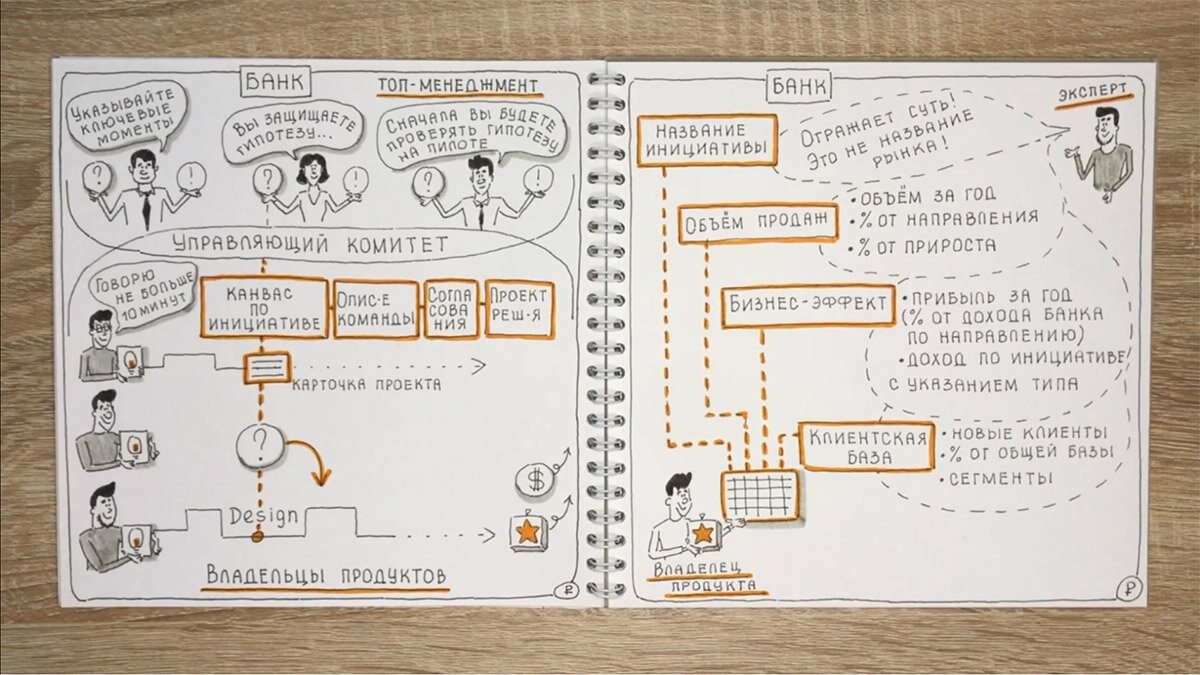 БАНК
ТОП-МЕНЕДЖМЕНТ
УКАЗЫВАЙТЕ
КЛЮЧЕВЫЕ
МОМЕНТЫ
ВЫ ЗАЩИЩАЕТЕ
ГИПОТЕЗУ...
СНАЧАЛА ВЫ БУДЕТЕ
ПРОВЕРЯТЬ ГИПОТЕЗУ
НА ПИЛОТЕ
?
!
?
!
?
!
УПРАВЛЯЮЩИЙ КОМИТЕТ
ГОВОРЮ
НЕ БОЛЬШЕ
10 МИНУТ
КАНВАС
ПО
ИНИЦИАТИВЕ
ОПИС-Е
КОМАНДЫ
СОГЛА
СОВА
НИЯ
ПРОЕКТ
РЕШ-Я
КАРТОЧКА ПРОЕКТА
?
$
Design
ВЛАДЕЛЬЦЫ ПРОДУКТОВ
₽
БАНК
ЭКСПЕРТ
НАЗВАНИЕ
ИНИЦИАТИВЫ
ОТРАЖАЕТ СУТЬ!
ЭТО НЕ НАЗВАНИЕ
РЫНКА!
ОБЪЁМ ПРОДАЖ
• ОБЪЁМ ЗА ГОД
• % ОТ НАПРАВЛЕНИЯ
• % ОТ ПРИРОСТА
БИЗНЕС-ЭФФЕКТ
• ПРИБЫЛЬ ЗА ГОД
(% ОТ ДОХОДА БАНКА
ПО НАПРАВЛЕНИЮ)
• ДОХОД ПО ИНИЦИАТИВЕ
С УКАЗАНИЕМ ТИПА
КЛИЕНТСКАЯ
БАЗА
• НОВЫЕ КЛИЕНТЫ
• % ОТ ОБЩЕЙ БАЗЫ
• СЕГМЕНТЫ
ВЛАДЕЛЕЦ
ПРОДУКТА
₽